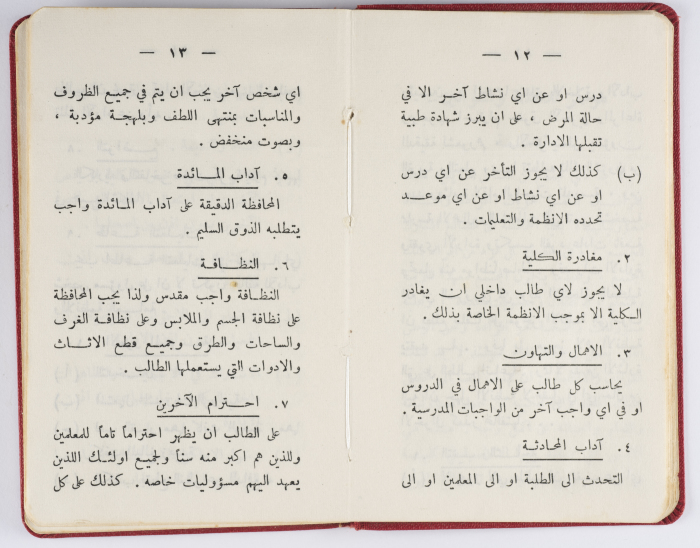 — ١٢ —
درس او عن اي نشاط آخر الا في
حالة المرض ، على ان يبرز شهادة طبية
تقبلها الادارة .
(ب) كذلك لا يجوز التأخر عن اي درس
او عن اي نشاط او عن اي موعد
تحدده الانظمة والتعليمات .
٢. مغادرة الكلية
لا يجوز لاي طالب داخلي ان يغادر
الكلية الا بموجب الانظمة الخاصة بذلك .
٣. الاهمال والتهاون
يحاسب كل طالب على الاهمال في الدروس
او في اي واجب آخر من الواجبات المدرسية .
٤. آداب المحادثة
التحدث الى الطلبة او الى المعلمين او الى
— ١٣ —
اي شخص آخر يجب ان يتم في جميع الظروف
والمناسبات بمنتهى اللطف وبلهجة مؤدبة ،
وبصوت منخفض .
٥. آداب المائدة
المحافظة الدقيقة على آداب المائدة واجب
يتطلبه الذوق السليم .
٦. النظافة
النظافة واجب مقدس ولذا يجب المحافظة
على نظافة الجسم والملابس وعلى نظافة الغرف
والساحات والطرق وجميع قطع الاثاث
والادوات التي يستعملها الطالب .
٧. احترام الآخرين
على الطالب ان يظهر احتراماً تاماً للمعلمين
وللذين هم اكبر منه سناً ولجميع اولئك اللذين
يعهد اليهم مسؤوليات خاصه . كذلك على كل